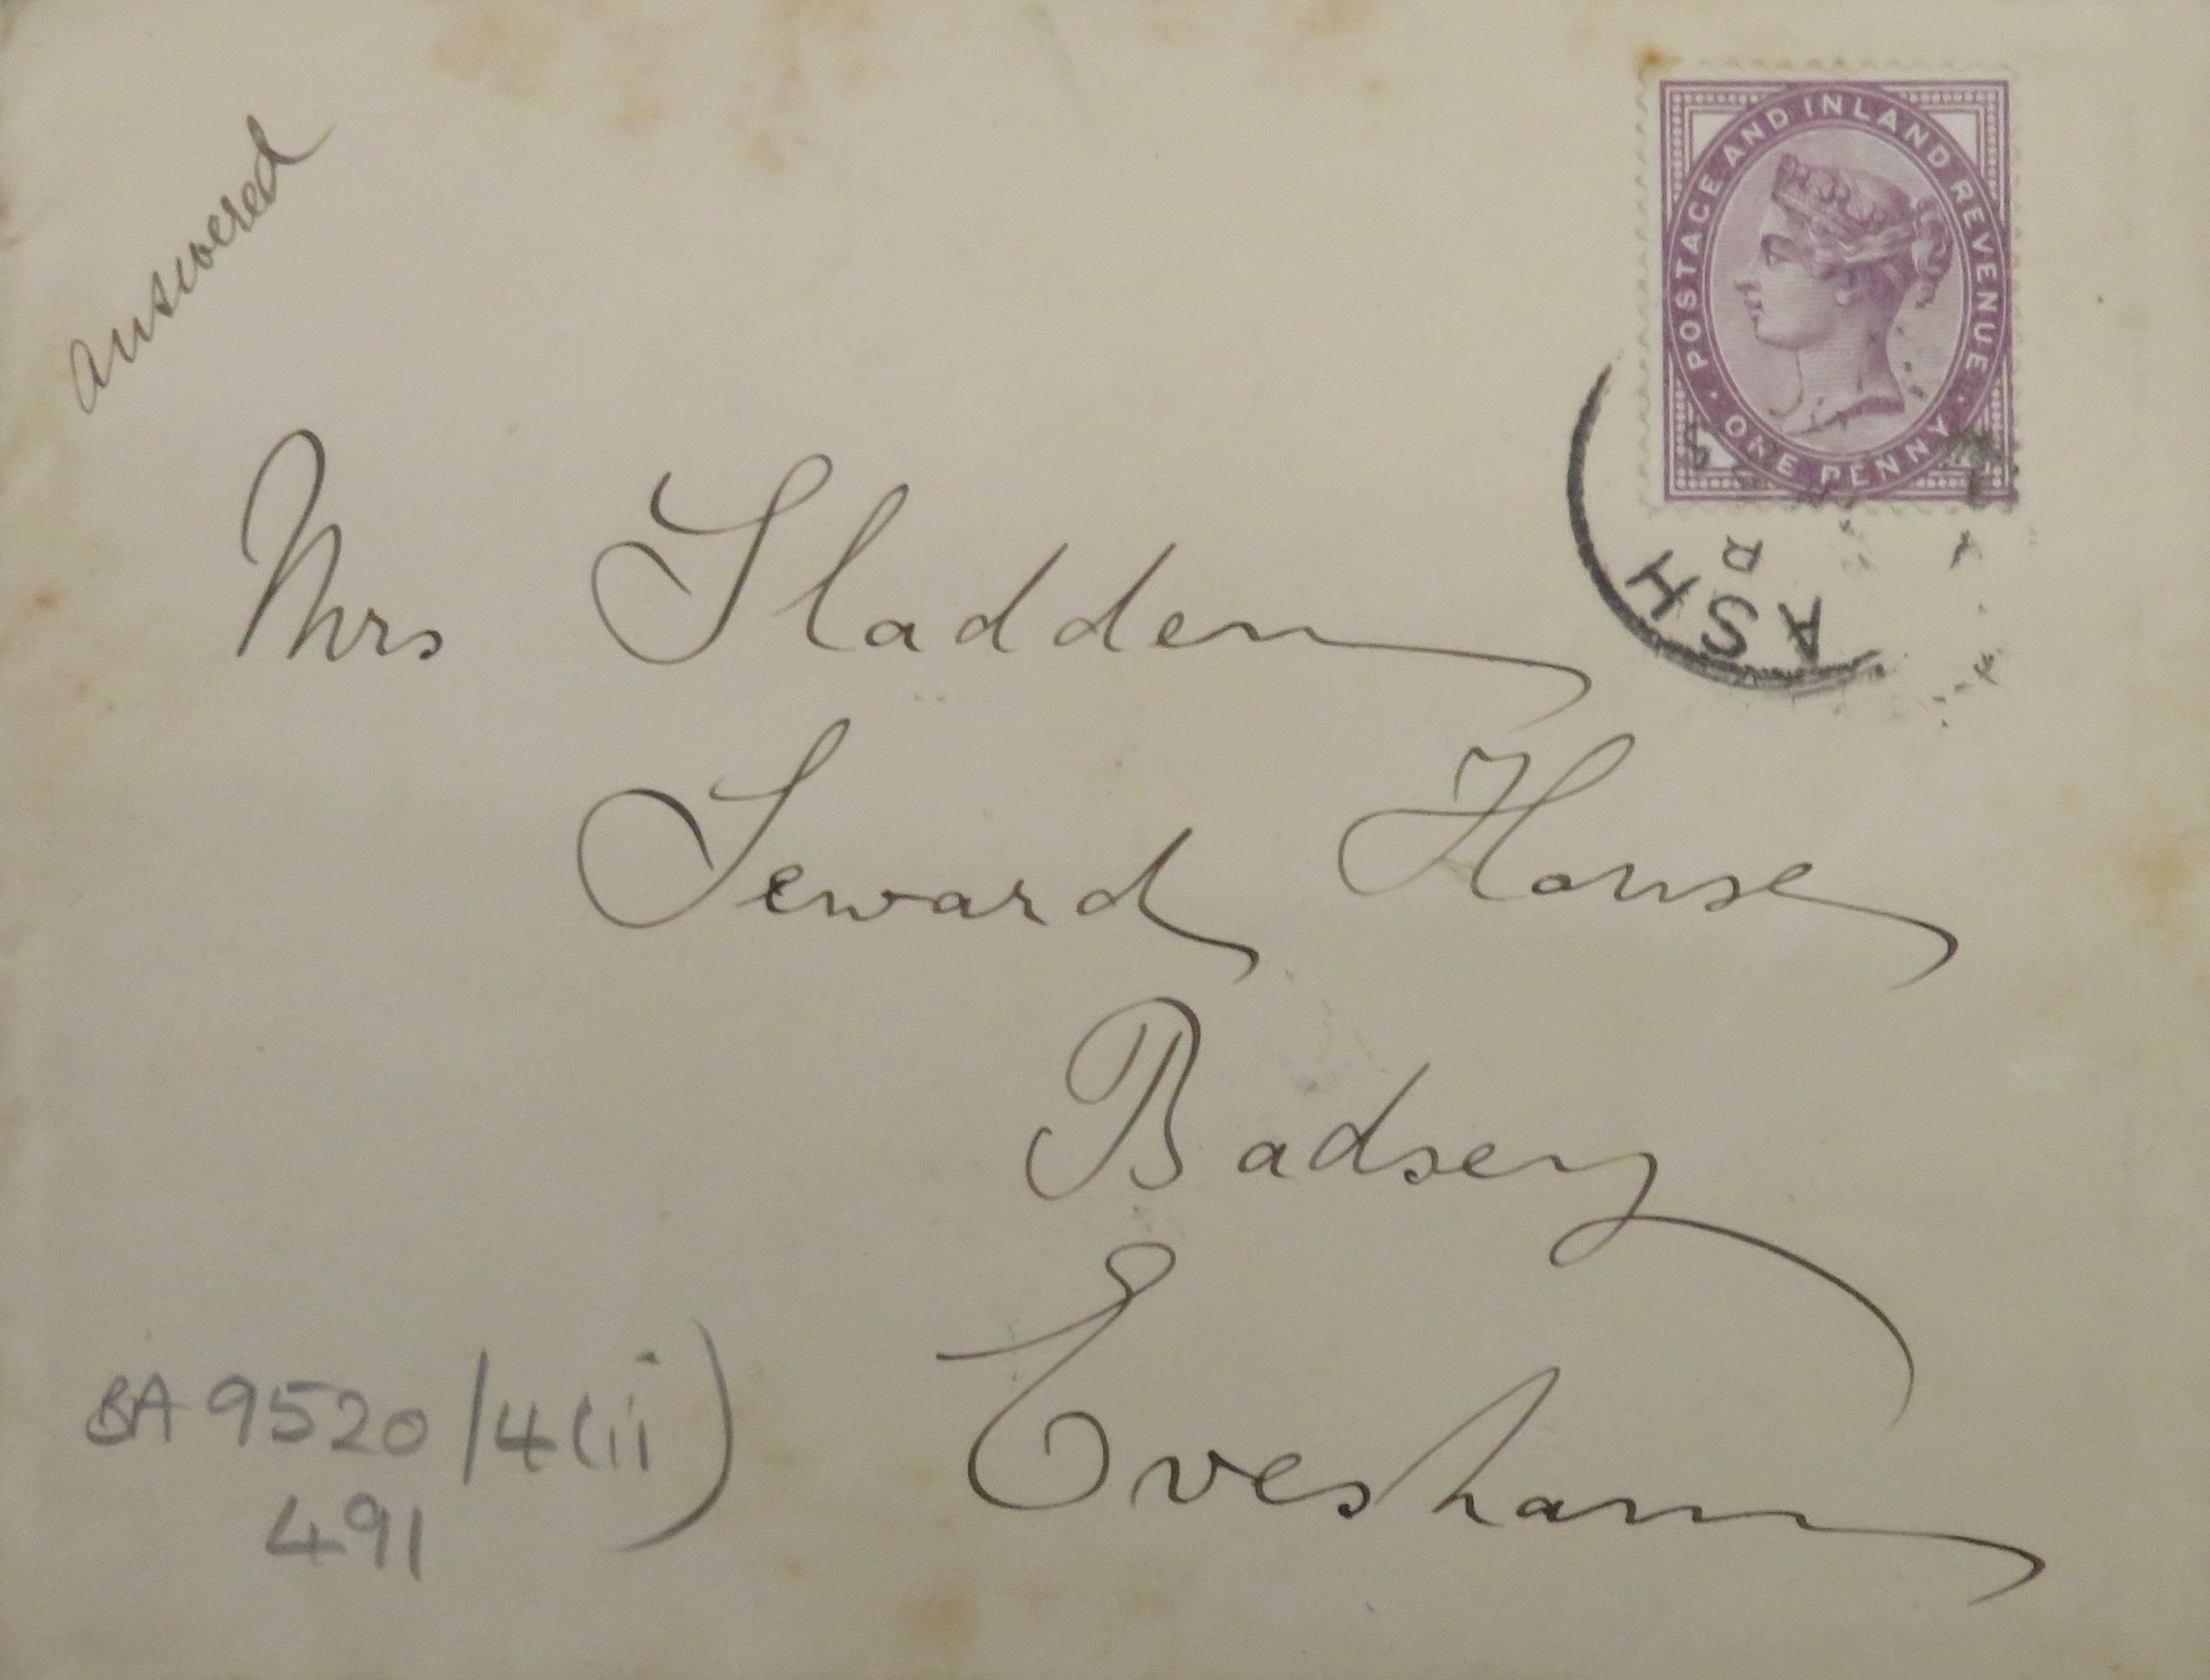 answered
POSTAGE AND INLAND REVENUE
ONE PENNY
ASH
Mrs Sladden
Seward House
Badsey
Evesham
BA 9520/4(ii)
491